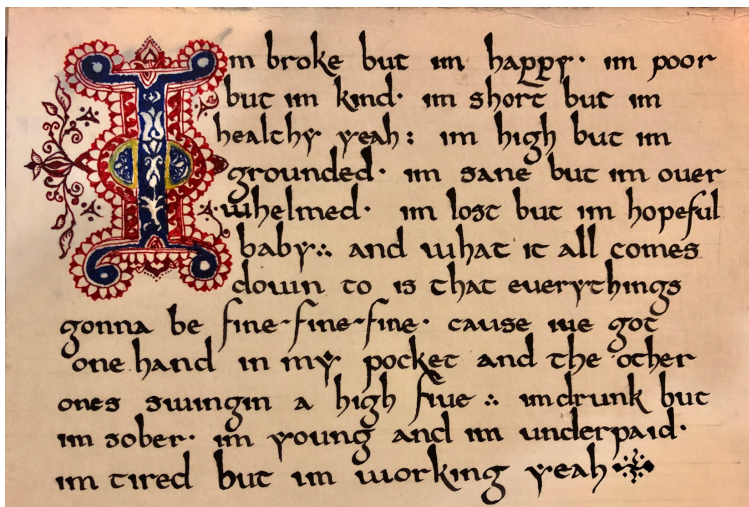 Im broke but im happy· im poor
but im kind· im short but im
healthy yeah: im high but im
grounded· im sane but im over
whelmed· im lost but im hopeful
baby∴ and what it all comes
down to is that everythings
gonna be fine-fine-fine· cause ive got
one hand in my pocket and the other
ones swingin a high five ∴ im drunk but
im sober· im young and im underpaid·
im tired but im working yeah